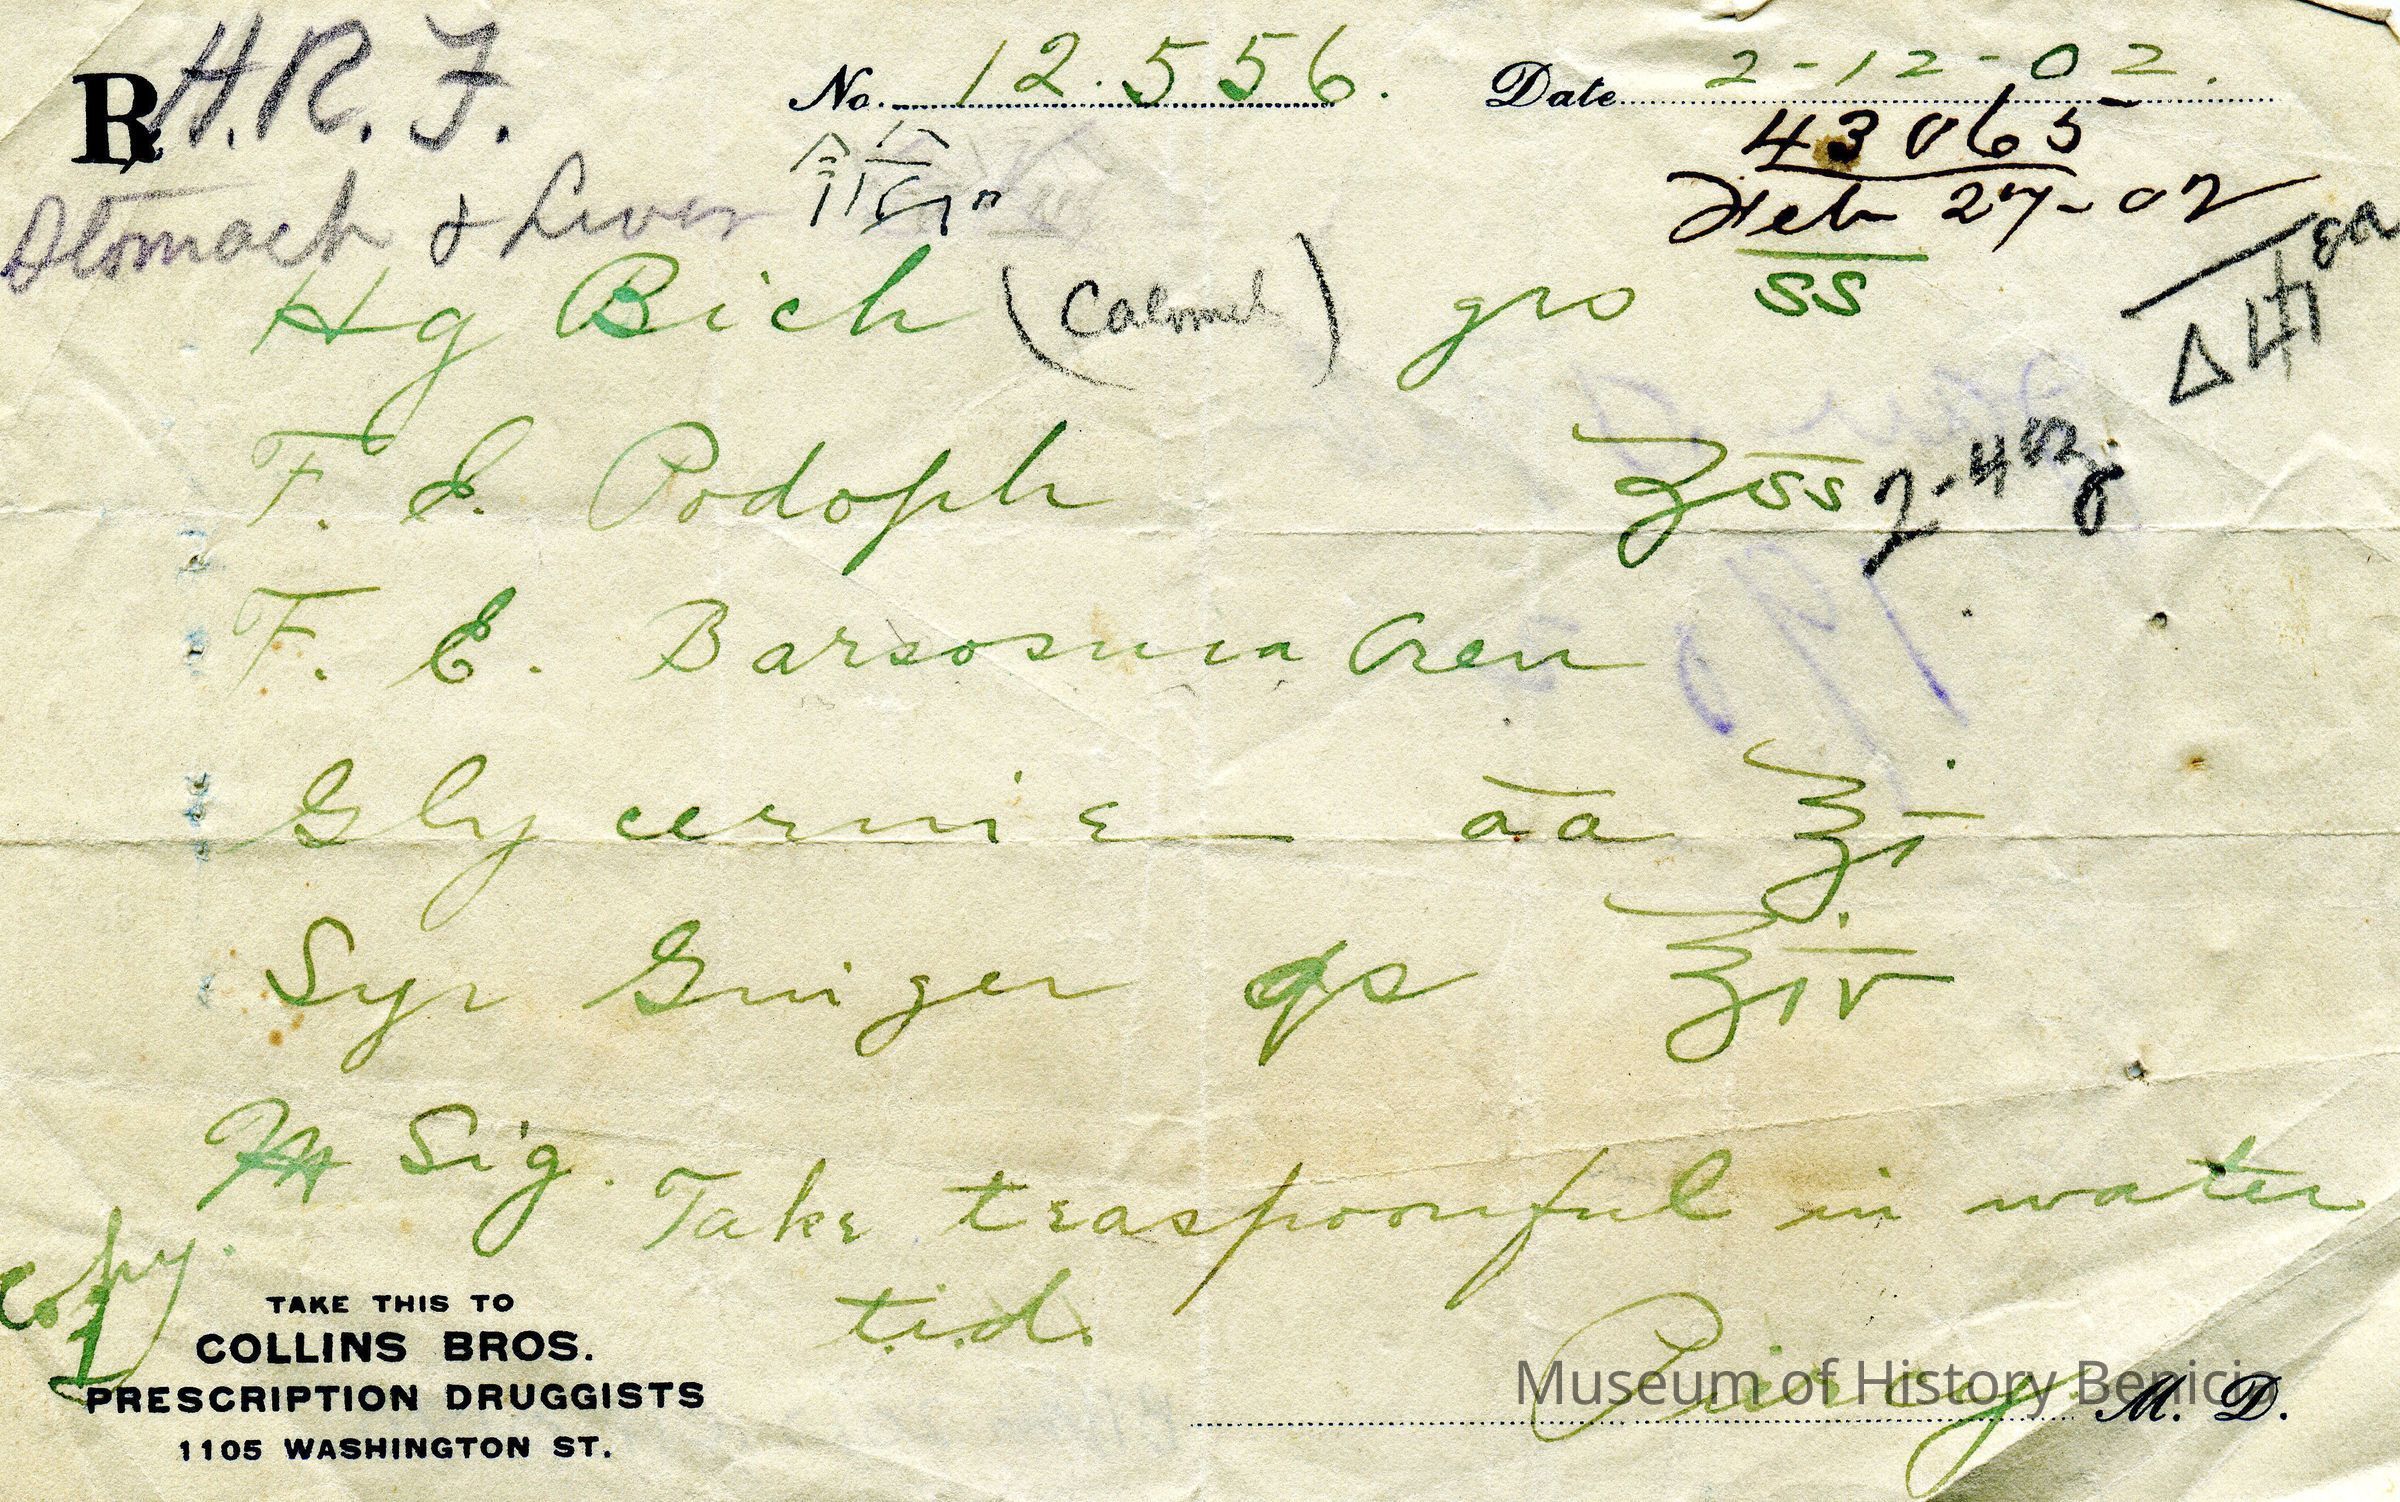 ℞ H. R. F. No. 12.556. Date 2-12-02.
43065
Stomach & Liver Feb 27-02
Hg Bich (Calomel) gro ss
F. E. Podoph ℥ss 2-4oz
F. E. Barsosma Cren
Glycerine āā ℥i
Syr Ginger qs ℥iv
M Sig. Take teaspoonful in water
t.i.d.
Copy.
1
TAKE THIS TO
COLLINS BROS.
PRESCRIPTION DRUGGISTS
1105 WASHINGTON ST.
M. D.
Museum of History Benicia